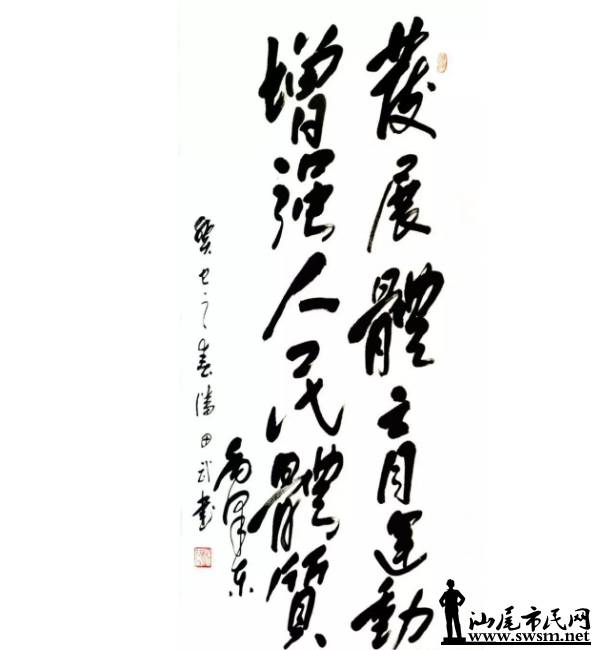 發展體育運動
增强人民體質
毛澤东
癸巳之春潘田武書
汕尾市民网
www.swsm.net